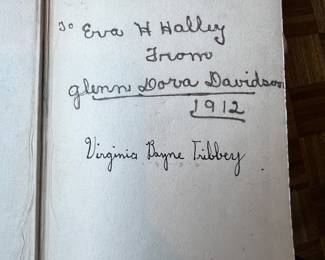 To Eva H Halley
From
glenn Dora Davidson
1912
Virginia Bayne Tribbey